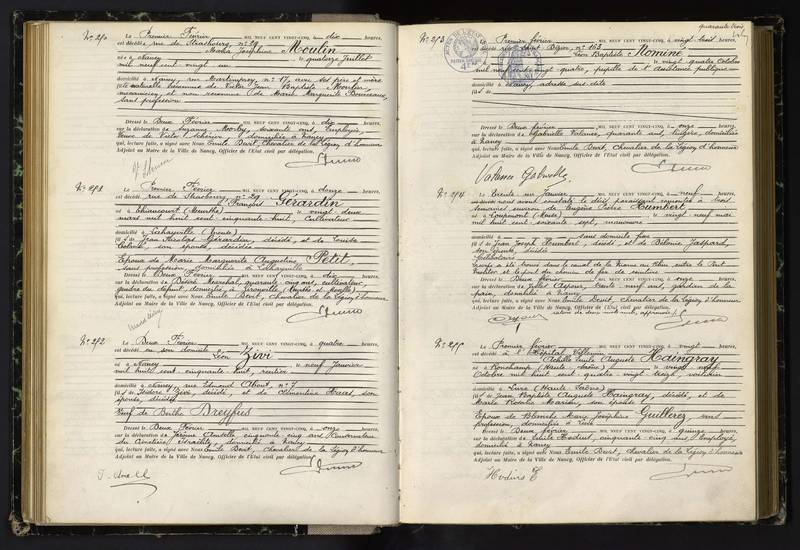 No 210
Le Premier Février MIL NEUF CENT VINGT-CINQ, à dix heures,
est décédé rue de Strasbourg, no 29
Maria Joséphine Moulin
né à Nancy, le quatorze Juillet
mil neuf cent vingt un
domicilié à Nancy, rue no 17, avec ses père et mère
fille naturelle reconnue de Victor Jean Baptiste Moulin,
mécanicien, et non reconnue de Marie Marguerite
sans profession
Dressé le Deux Février MIL NEUF CENT VINGT-CINQ, à dix heures,
sur la déclaration de Suzanne soixante ans, employée,
Veuve de Victor domiciliée à Nancy
qui, lecture faite, a signé avec Nous Emile Chevalier de la Légion d'honneur
Adjoint au Maire de la Ville de Nancy, Officier de l'Etat civil par délégation.
Le Premier Février MIL NEUF CENT VINGT-CINQ, à onze heures,
est décédé rue de Strasbourg, no 29
François Gérardin
né à Thiaucourt (Meurthe) le vingt deux
mars mil huit cent cinquante huit, cultivateur
domicilié à Lahayville (Meuse)
fils de Jean Nicolas Gérardin, décédé, et de Louise
son épouse, décédée
Epoux de Marie Marguerite Augustine Petit,
sans profession, domiciliée à Lahayville
Dressé le Deux Février MIL NEUF CENT VINGT-CINQ, à dix heures,
sur la déclaration de Désiré Maréchal, quarante cinq ans, cultivateur,
gendre du défunt, domicilié à Gironville (Meurthe et Moselle)
qui, lecture faite, a signé avec Nous Emile Chevalier de la Légion d'honneur
Adjoint au Maire de la Ville de Nancy, Officier de l'Etat civil par délégation.
No 212
Le Deux Février MIL NEUF CENT VINGT-CINQ, à quatre heures,
est décédé en son domicile
Léon Zivi
né à Nancy le neuf Janvier
mil huit cent cinquante huit, rentier
domicilié à Nancy, rue Edmond About, no 7
fils de Isidore Zivi, décédé, et de Clémentine Haas, son
épouse, décédée
Veuf de Berthe Dreyfus
Dressé le Deux Février MIL NEUF CENT VINGT-CINQ, à onze heures,
sur la déclaration de Jérôme cinquante cinq ans, Conservateur
du Cimetière Israélite, domicilié à Nancy
qui, lecture faite, a signé avec Nous Emile Chevalier de la Légion d'honneur
Adjoint au Maire de la Ville de Nancy, Officier de l'Etat civil par délégation.
No 213
Le Premier février MIL NEUF CENT VINGT-CINQ, à vingt trois heures,
est décédé rue Saint Dizier, no 163
Léon Baptiste Nominé
né à le vingt quatre Octobre
mil neuf cent vingt quatre, pupille de l'assistance publique
domicilié à Nancy, adresse sus dite
fils de
Dressé le Deux février MIL NEUF CENT VINGT-CINQ, à onze heures,
sur la déclaration de Gabrielle Valence, quarante ans, domiciliée
à Nancy
qui, lecture faite, a signé avec Nous Emile Chevalier de la Légion d'honneur
Adjoint au Maire de la Ville de Nancy, Officier de l'Etat civil par délégation.
Valence Gabrielle
No 214
Le Trente un Janvier MIL NEUF CENT VINGT-CINQ, à neuf heures,
nous avons constaté le décès paraissant remonter à trois
semaines environ de Eugène Humbert
né à Loupmont (Meuse) le vingt neuf mai
mil huit cent soixante sept, manoeuvre
domicilié à sans domicile fixe
fils de Jean Joseph Humbert, décédé, et de Gaspard,
son épouse, décédée
Célibataire
Le corps a été trouvé dans le canal de la Marne au Rhin, entre le Pont
et le pont du chemin de fer de ceinture
Dressé le Deux février MIL NEUF CENT VINGT-CINQ, à onze heures,
sur la déclaration de trente neuf ans, gardien de la
paix, domicilié à Nancy
qui, lecture faite, a signé avec Nous Emile Chevalier de la Légion d'honneur
Adjoint au Maire de la Ville de Nancy, Officier de l'Etat civil par délégation.
No 215
Le Premier février MIL NEUF CENT VINGT-CINQ, à vingt heures,
est décédé à l'Hôpital Villemin
Achille Emile Auguste Haingray
né à Ronchamp (Haute Saône) le vingt neuf
Octobre mil huit cent quatre vingt trois, voiturier
domicilié à Lure (Haute Saône)
fils de Jean Baptiste Auguste Haingray, décédé, et de
Marie Rosalie son épouse
Epoux de Blanche Marie Joséphine Guillerez, sans
profession, domiciliée à Lure
Dressé le Deux février MIL NEUF CENT VINGT-CINQ, à quinze heures,
sur la déclaration de Emile cinquante cinq ans, employé,
domicilié à Nancy
qui, lecture faite, a signé avec Nous Emile Chevalier de la Légion d'honneur
Adjoint au Maire de la Ville de Nancy, Officier de l'Etat civil par délégation.